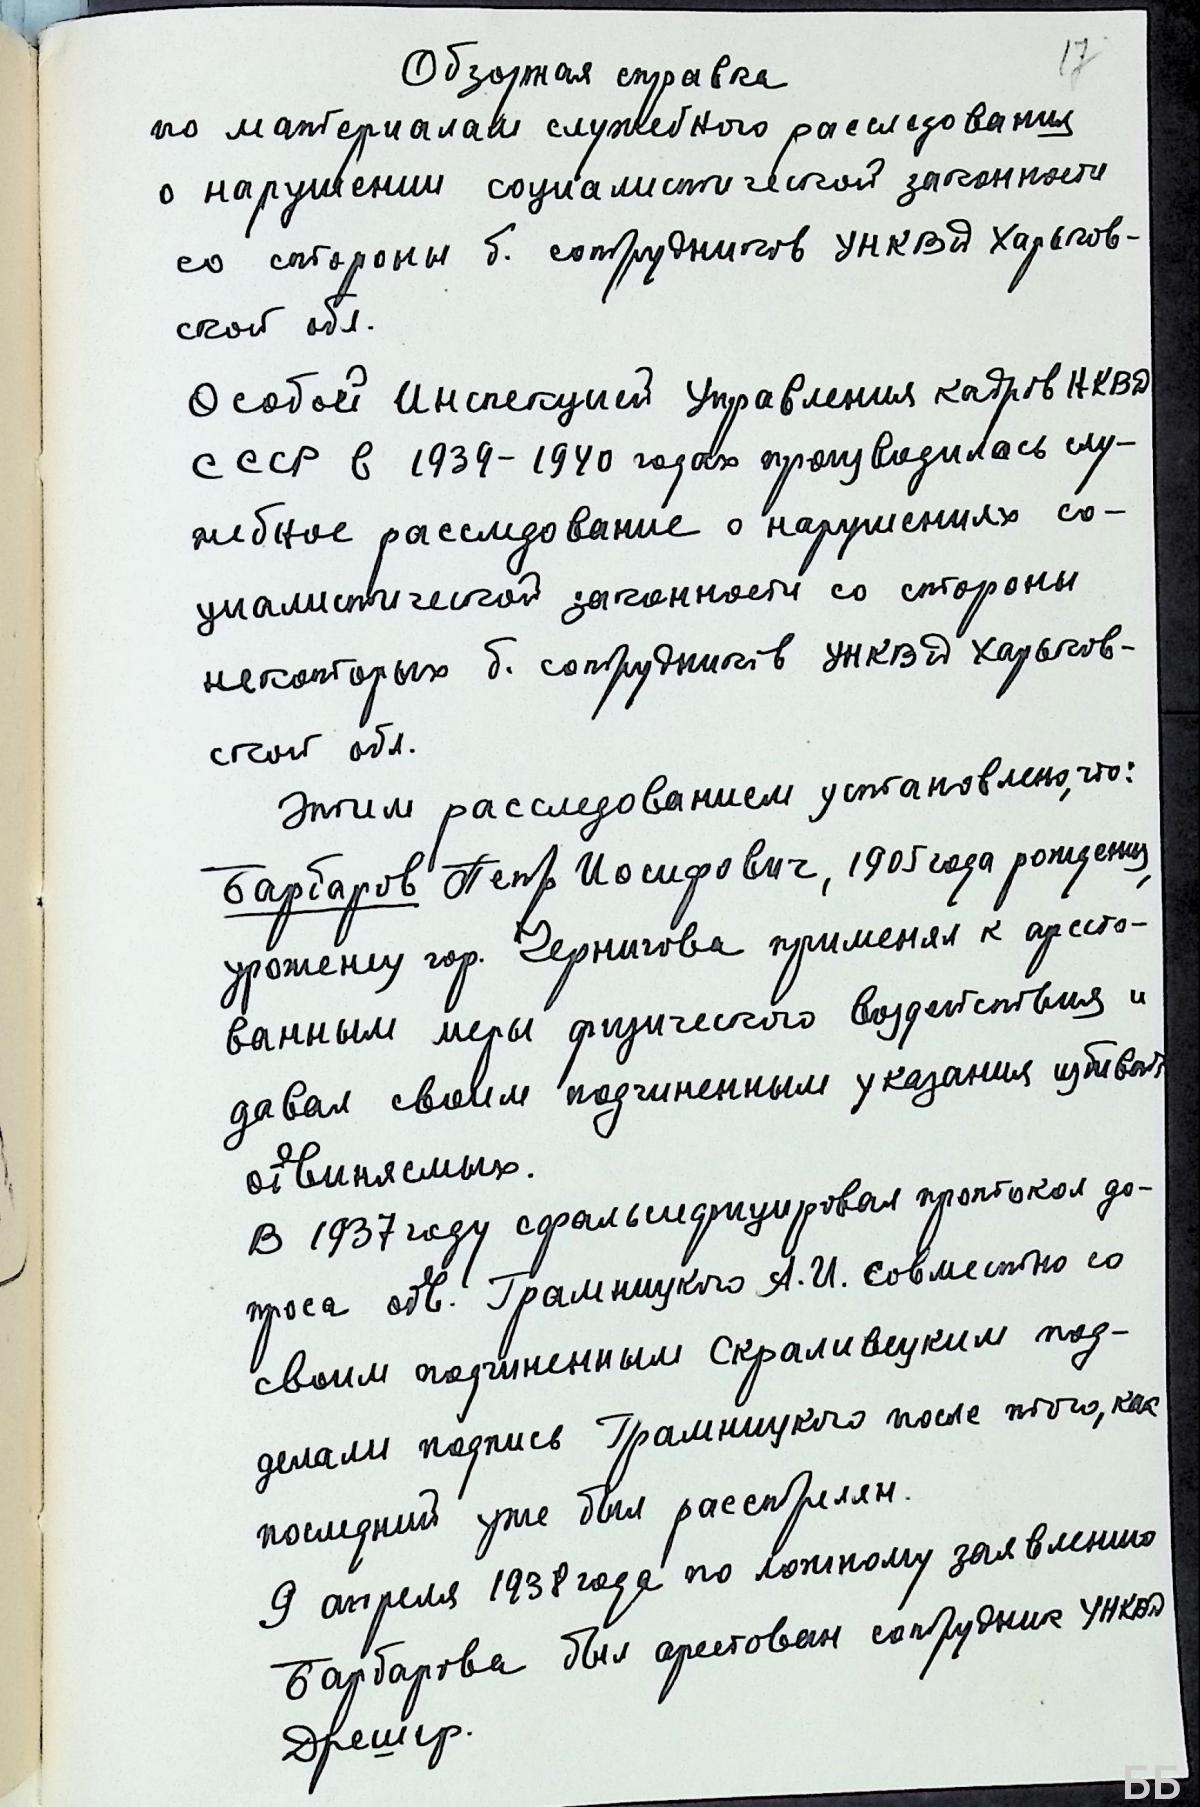 17
Обзорная справка
по материалам служебного расследования
о нарушении социалистической законности
со стороны б. сотрудников УНКВД Харьков-
ской обл.
Особой Инспекцией Управления кадров НКВД
СССР в 1939-1940 годах производилась слу-
жебное расследование о нарушениях со-
циалистической законности со стороны
некоторых б. сотрудников УНКВД Харьков-
ской обл.
Этим расследованием установлено, что:
Барбаров Петр Иосифович, 1905 года рождения,
уроженец гор. Чернигова применял к аресто-
ванным меры физического воздействия и
давал своим подчиненным указания избивать
обвиняемых.
В 1937 году сфальсифицировал протокол до-
проса обв. Грамницкого А.И. совместно со
своим подчиненным Скраливецким под-
делали подпись Грамницкого после того, как
последний уже был расстрелян.
9 апреля 1938 года по ложному заявлению
Барбарова был арестован сотрудник УНКВД
Дрешер.
ББ